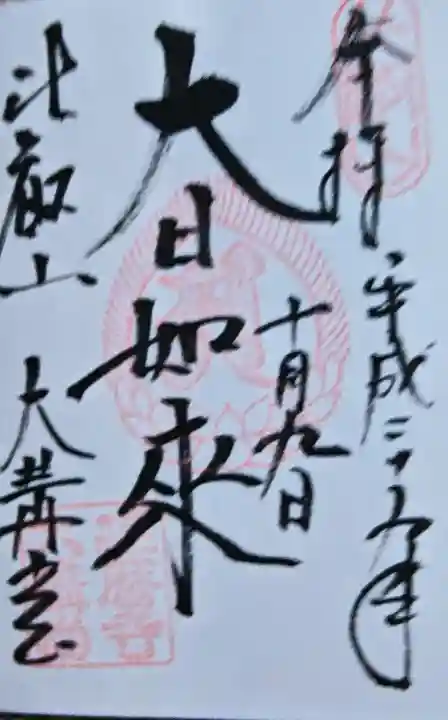 奉拝
平成二十八年
十月九日
大日如来
比叡山
大講堂